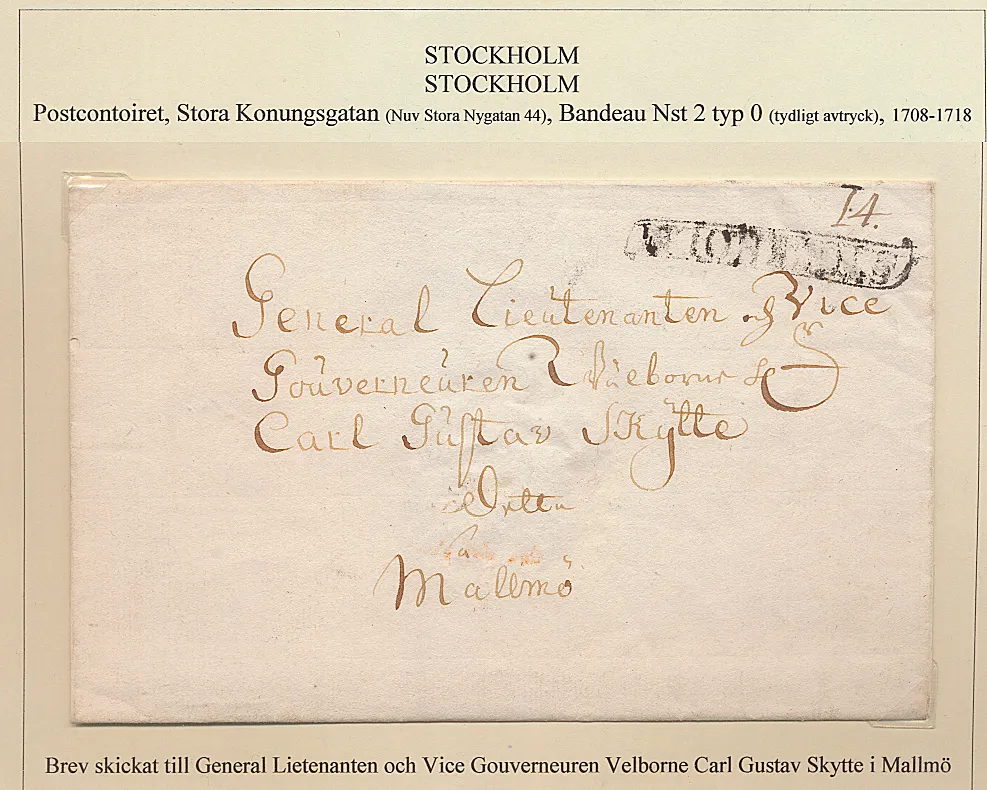 STOCKHOLM
STOCKHOLM
Postcontoiret, Stora Konungsgatan (Nuv Stora Nygatan 44), Bandeau Nst 2 typ 0 (tydligt avtryck), 1708-1718
14.
General Lieutenanten och Vice
Gouverneuren
Carl Gustav Skÿtte
Mallmö
Brev skickat till General Lietenanten och Vice Gouverneuren Velborne Carl Gustav Skytte i Mallmö